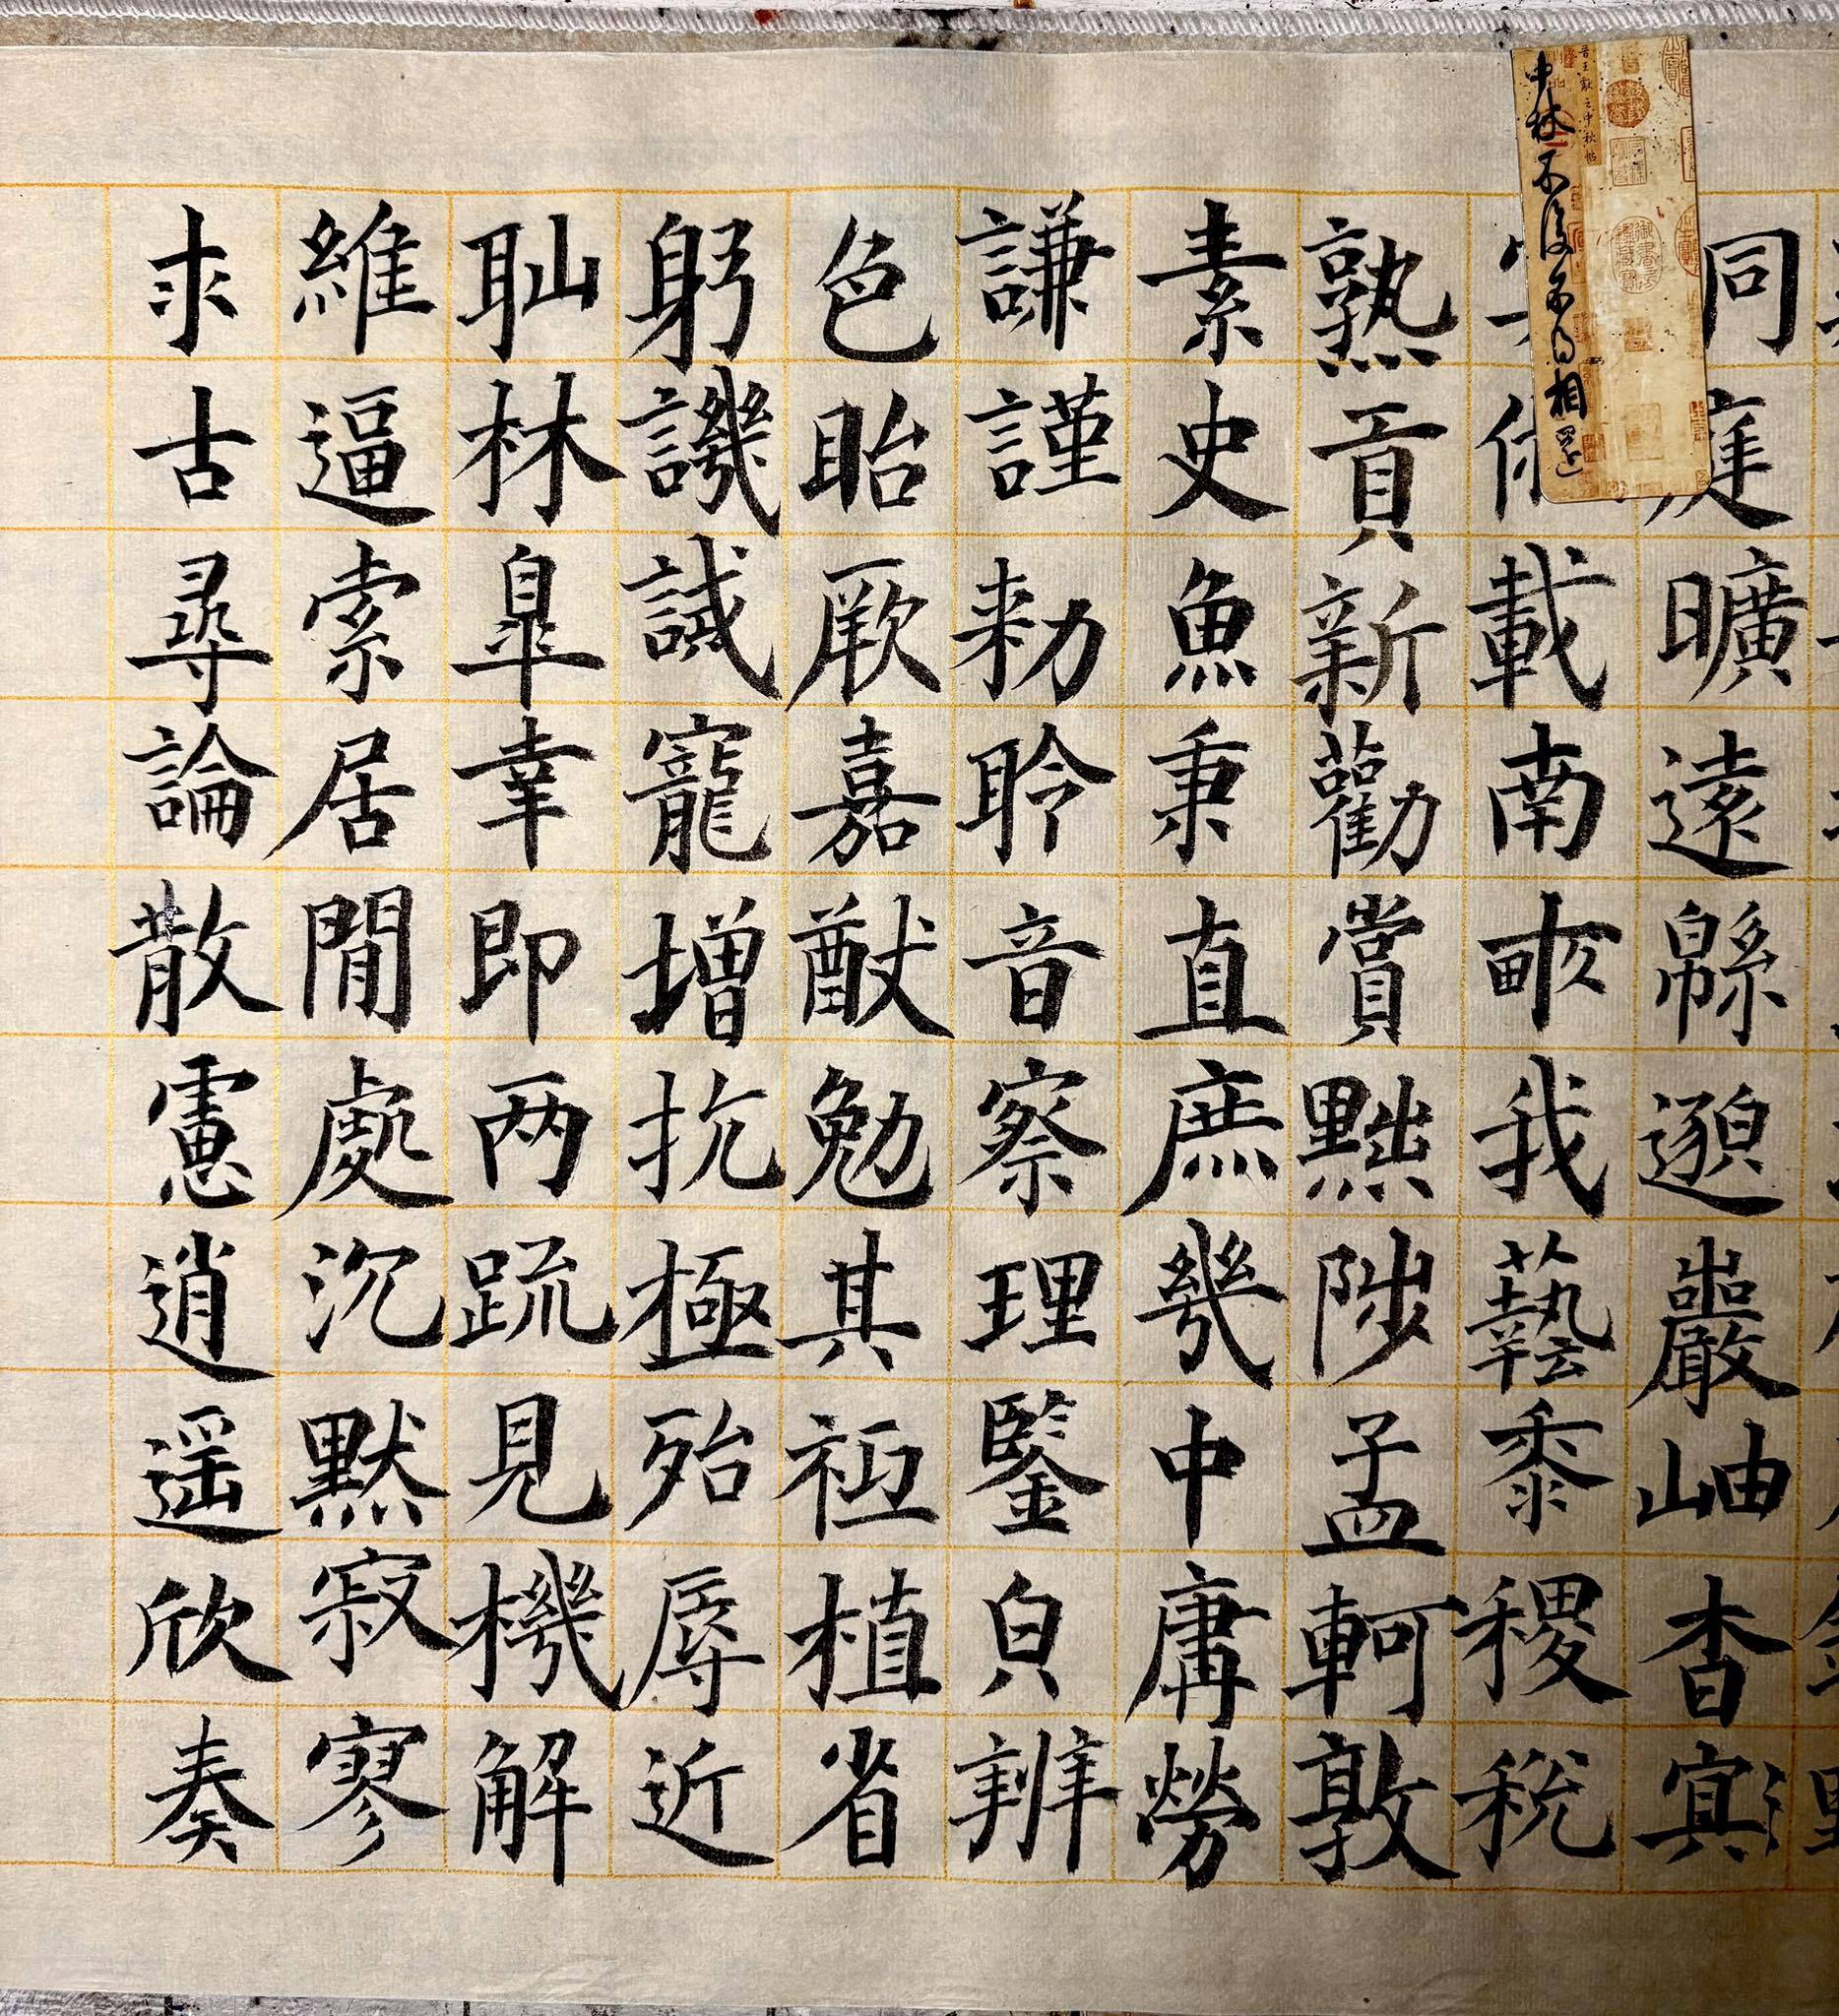 庭曠遠緜邈巖岫杳㝠
載南畝我藝黍稷稅
熟貢新勸賞黜陟孟軻敦
素史魚秉直庶幾中庸勞
謙謹勑聆音察理鑒皃辨
色貽厥嘉猷勉其祗植省
躬譏誡寵增抗極殆辱近
耻林皐幸即两疏見機解
維逼索居閒處沉默寂寥
求古尋論散慮逍遥欣奏
晉王獻之中秋帖
中秋不復不得相還